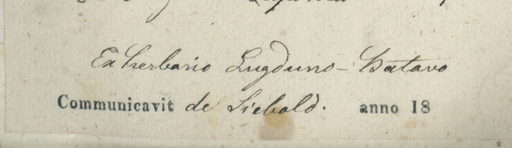 Ex herbario Lugduno-Batavo
Communicavit de Siebold. anno 18